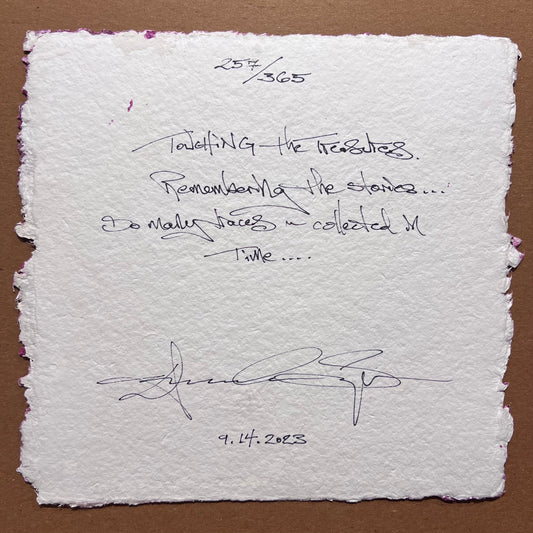 257/365
Touching the Treasures.
Remembering the stories...
So many traces ~ collected in
Time....
9.14.2023